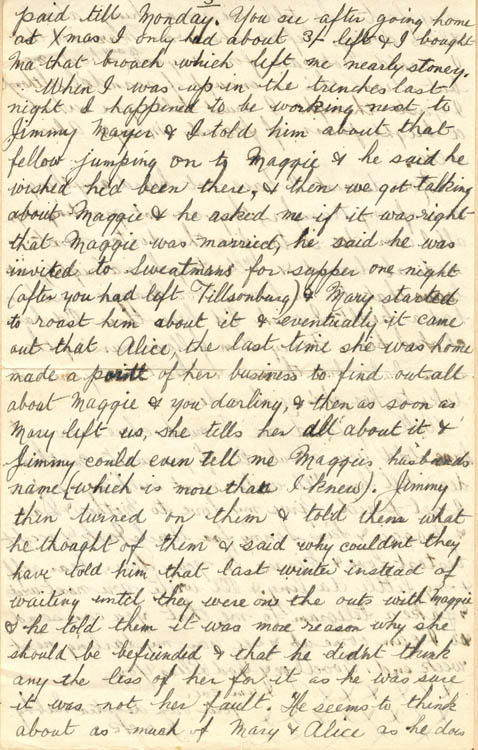 3
paid till Monday. You see after going home
at Xmas I only had about 3/- left & I bought
Ma that broach which left me nearly stoney.
When I was up in the trenches last
night I happened to be working next to
Jimmy Mayer & I told him about that
fellow jumping on to Maggie & he said he
wished he'd been there, & then we got talking
about Maggie & he asked me if it was right
that Maggie was married, he said he was
invited to Sweatmans for supper one night
(after you had left Tillsonburg) & Mary started
to roast him about it & eventually it came
out that Alice, the last time she was home
made a point of her business to find out all
about Maggie & you darling, & then as soon as
Mary left us, she tells her all about it &
Jimmy could even tell me Maggies husbands
name (which is more than I knew). Jimmy
then turned on them & told them what
he thought of them & said why couldnt they
have told him that last winter instead of
waiting until they were on the outs with Maggie
& he told them it was more reason why she
should be befriended & that he didnt think
any the less of her for it as he was sure
it was not her fault. He seems to think
about as much of Mary & Alice as he does